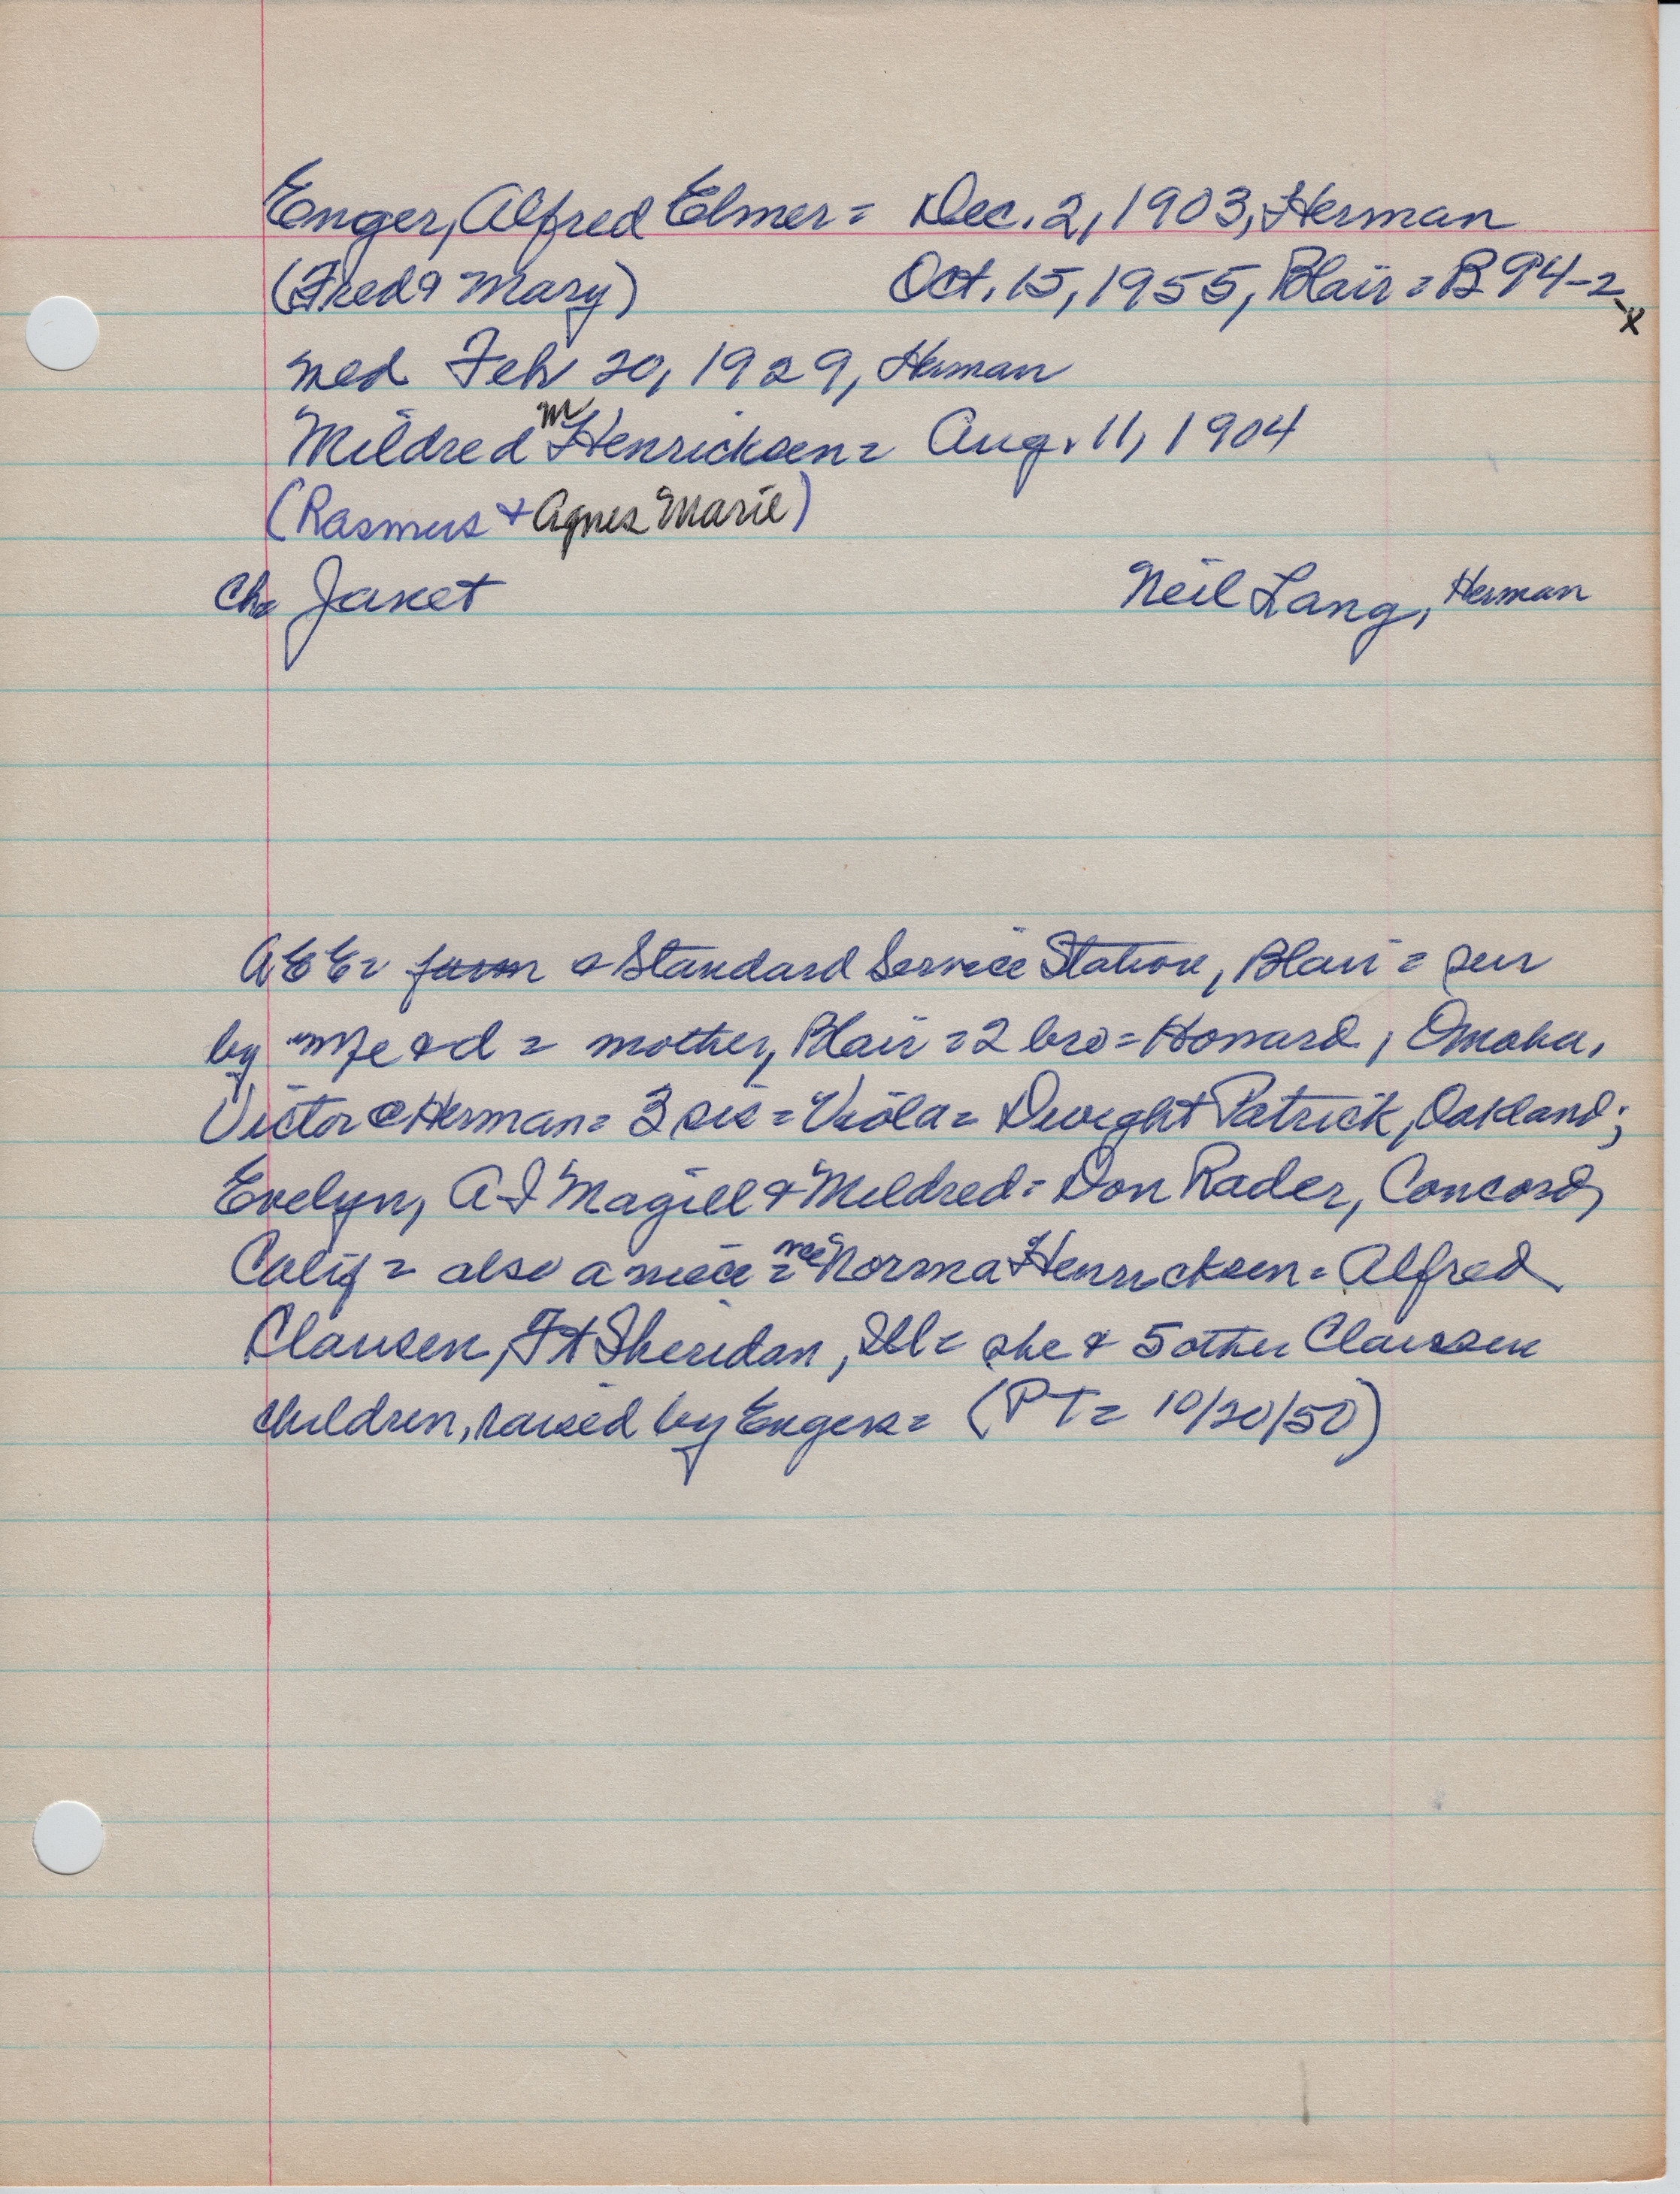 Enger, Alfred Elmer = Dec. 2, 1903, Herman
(Fred & Mary) Oct. 15, 1955, Blair = B 94-2
x
med Feb 20, 1929, Herman
Mildred M Henricksen = Aug. 11, 1904
(Rasmus & Agnes Marie)
Ch= Janet Neil Lang, Herman
AEE = farm & Standard Service Station, Blair = sur
by wife & d = mother, Blair = 2 bro = Howard, Omaha,
Victor @ Herman = 3 sis = Viola = Dwight Patrick, Oakland;
Evelyn, A I Magill & Mildred = Don Rader, Concord,
Calif = also a niece = nee Norma Henricksen = Alfred
Clausen, Ft Sheridan, Ill = she & 5 other Claussen
children, raised by Engers = (PT = 10/20/50)